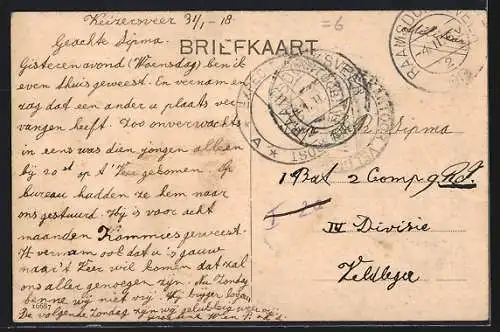 Keizersveer 31/1-18.
=6
Geachte Sipma.
BRIEFKAART
Gisterenavond (Woensdag) ben ik
even thuis geweest. En vernam en
zag dat een ander u plaats ver-
vangen heeft. Zoo onverwachts
in eens was dien jongen alleen
bij gekomen. Op
bureau hadden ze hem naar
ons gestuurd. Hij is voor acht
maanden Kommies geweest.
Ik vernam ook dat u 's gauw
naar 't Veer wil komen dat zal
ons alle genoegen zijn. Nu Zondag
benne wij niet vrij.
De volgende Zondag zijn wij
RAAMSDONKSVEER
Sipma
1 Bat 2 Comp
IV Divisie
Veldleger
10687